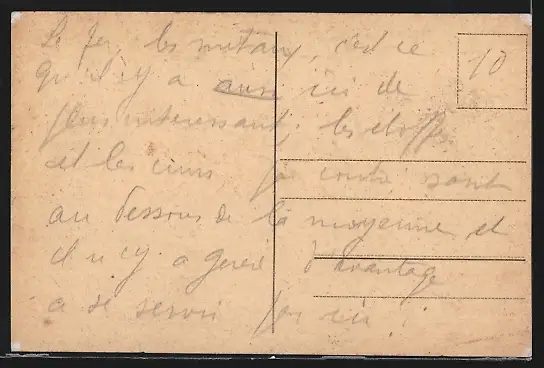 Le fer, les métaux, c'est ce
10
qu'il y a aussi ici de
plus intéressant; les étoffes
et les cuirs par contre sont
au dessous de la moyenne et
il n'y a guère d'avantage
a se servir par ici !